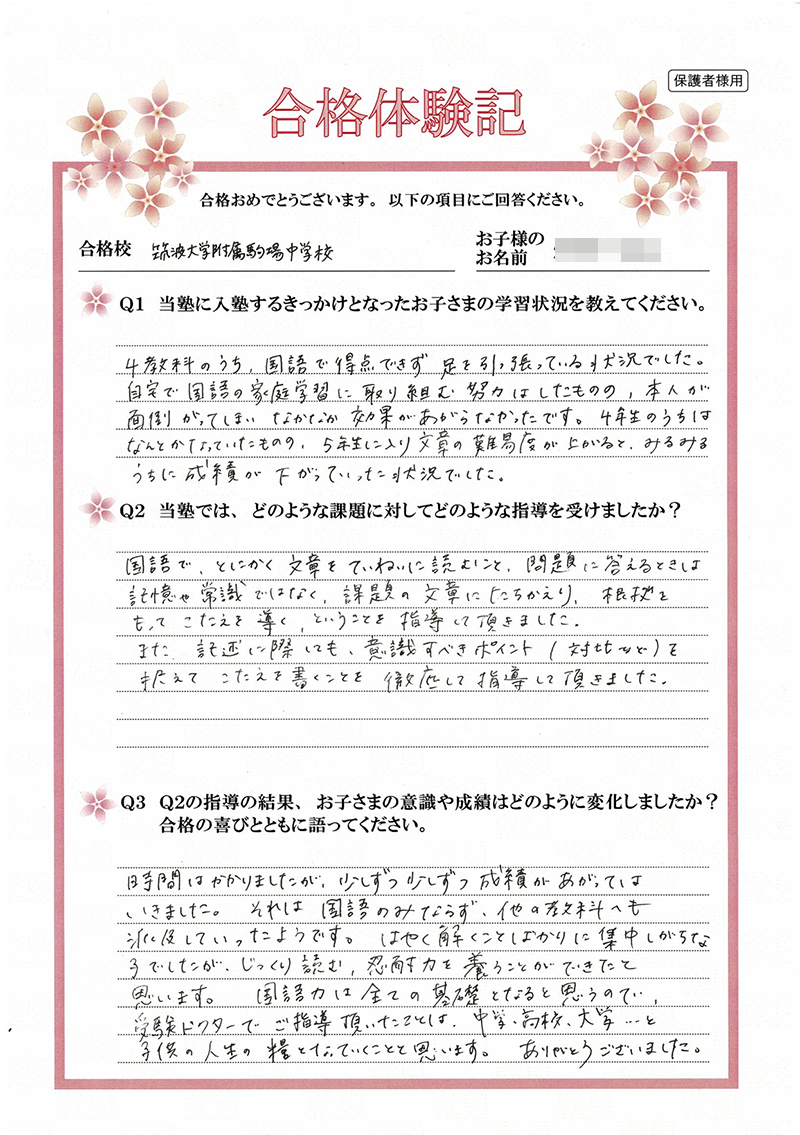 保護者様用
合格体験記
合格おめでとうございます。以下の項目にご回答ください。
合格校 筑波大学附属駒場中学校
お子様の
お名前
Q1 当塾に入塾するきっかけとなったお子さまの学習状況を教えてください。
4教科のうち、国語で得点できず 足を引っ張っている状況でした。
自宅で国語の家庭学習に取り組む努力はしたものの、本人が
面倒がってしまい なかなか効果があがらなかったです。4年生のうちは
なんとかなっていたものの、5年生に入り文章の難易度が上がると、みるみる
うちに成績が下がっていった状況でした。
Q2 当塾では、どのような課題に対してどのような指導を受けましたか？
国語で、とにかく文章をていねいに読むこと、問題に答えるときは
記憶や常識ではなく、課題の文章にたちかえり、根拠を
もって こたえを導く、ということを指導して頂きました。
また 記述に際しても、意識すべきポイント（対比など）を
択えて こたえを書くことを 徹底して指導して頂きました。
Q3 Q2の指導の結果、お子さまの意識や成績はどのように変化しましたか？
合格の喜びとともに語ってください。
時間はかかりましたが、少しずつ少しずつ成績があがっては
いきました。それは国語のみならず、他の教科へも
派及していったようです。はやく解くことばかりに集中しがちな
子でしたが、じっくり読む、忍耐力を養うことができたと
思います。国語力は全ての基礎となると思うので、
受験ドクターでご指導頂いたことは、中学、高校、大学…と
子供の人生の糧となっていくことと思います。ありがとうございました。